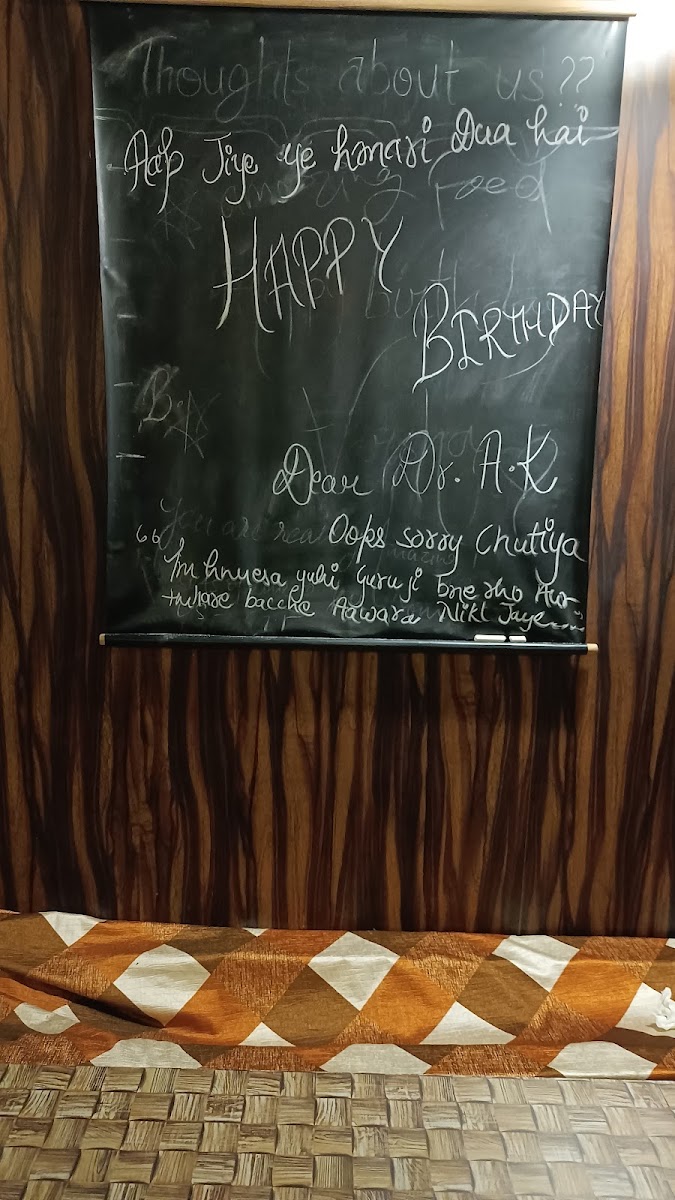 Thoughts about us??
Aap Jiye ye hmari Dua hai
Food
HAPPY
BIRTHDAY
Dear Dr. A.K
You are Oops sorry Chutiya
yuhi Guru ji bne rho Aur
bacche Aawara Nikl Jaye....